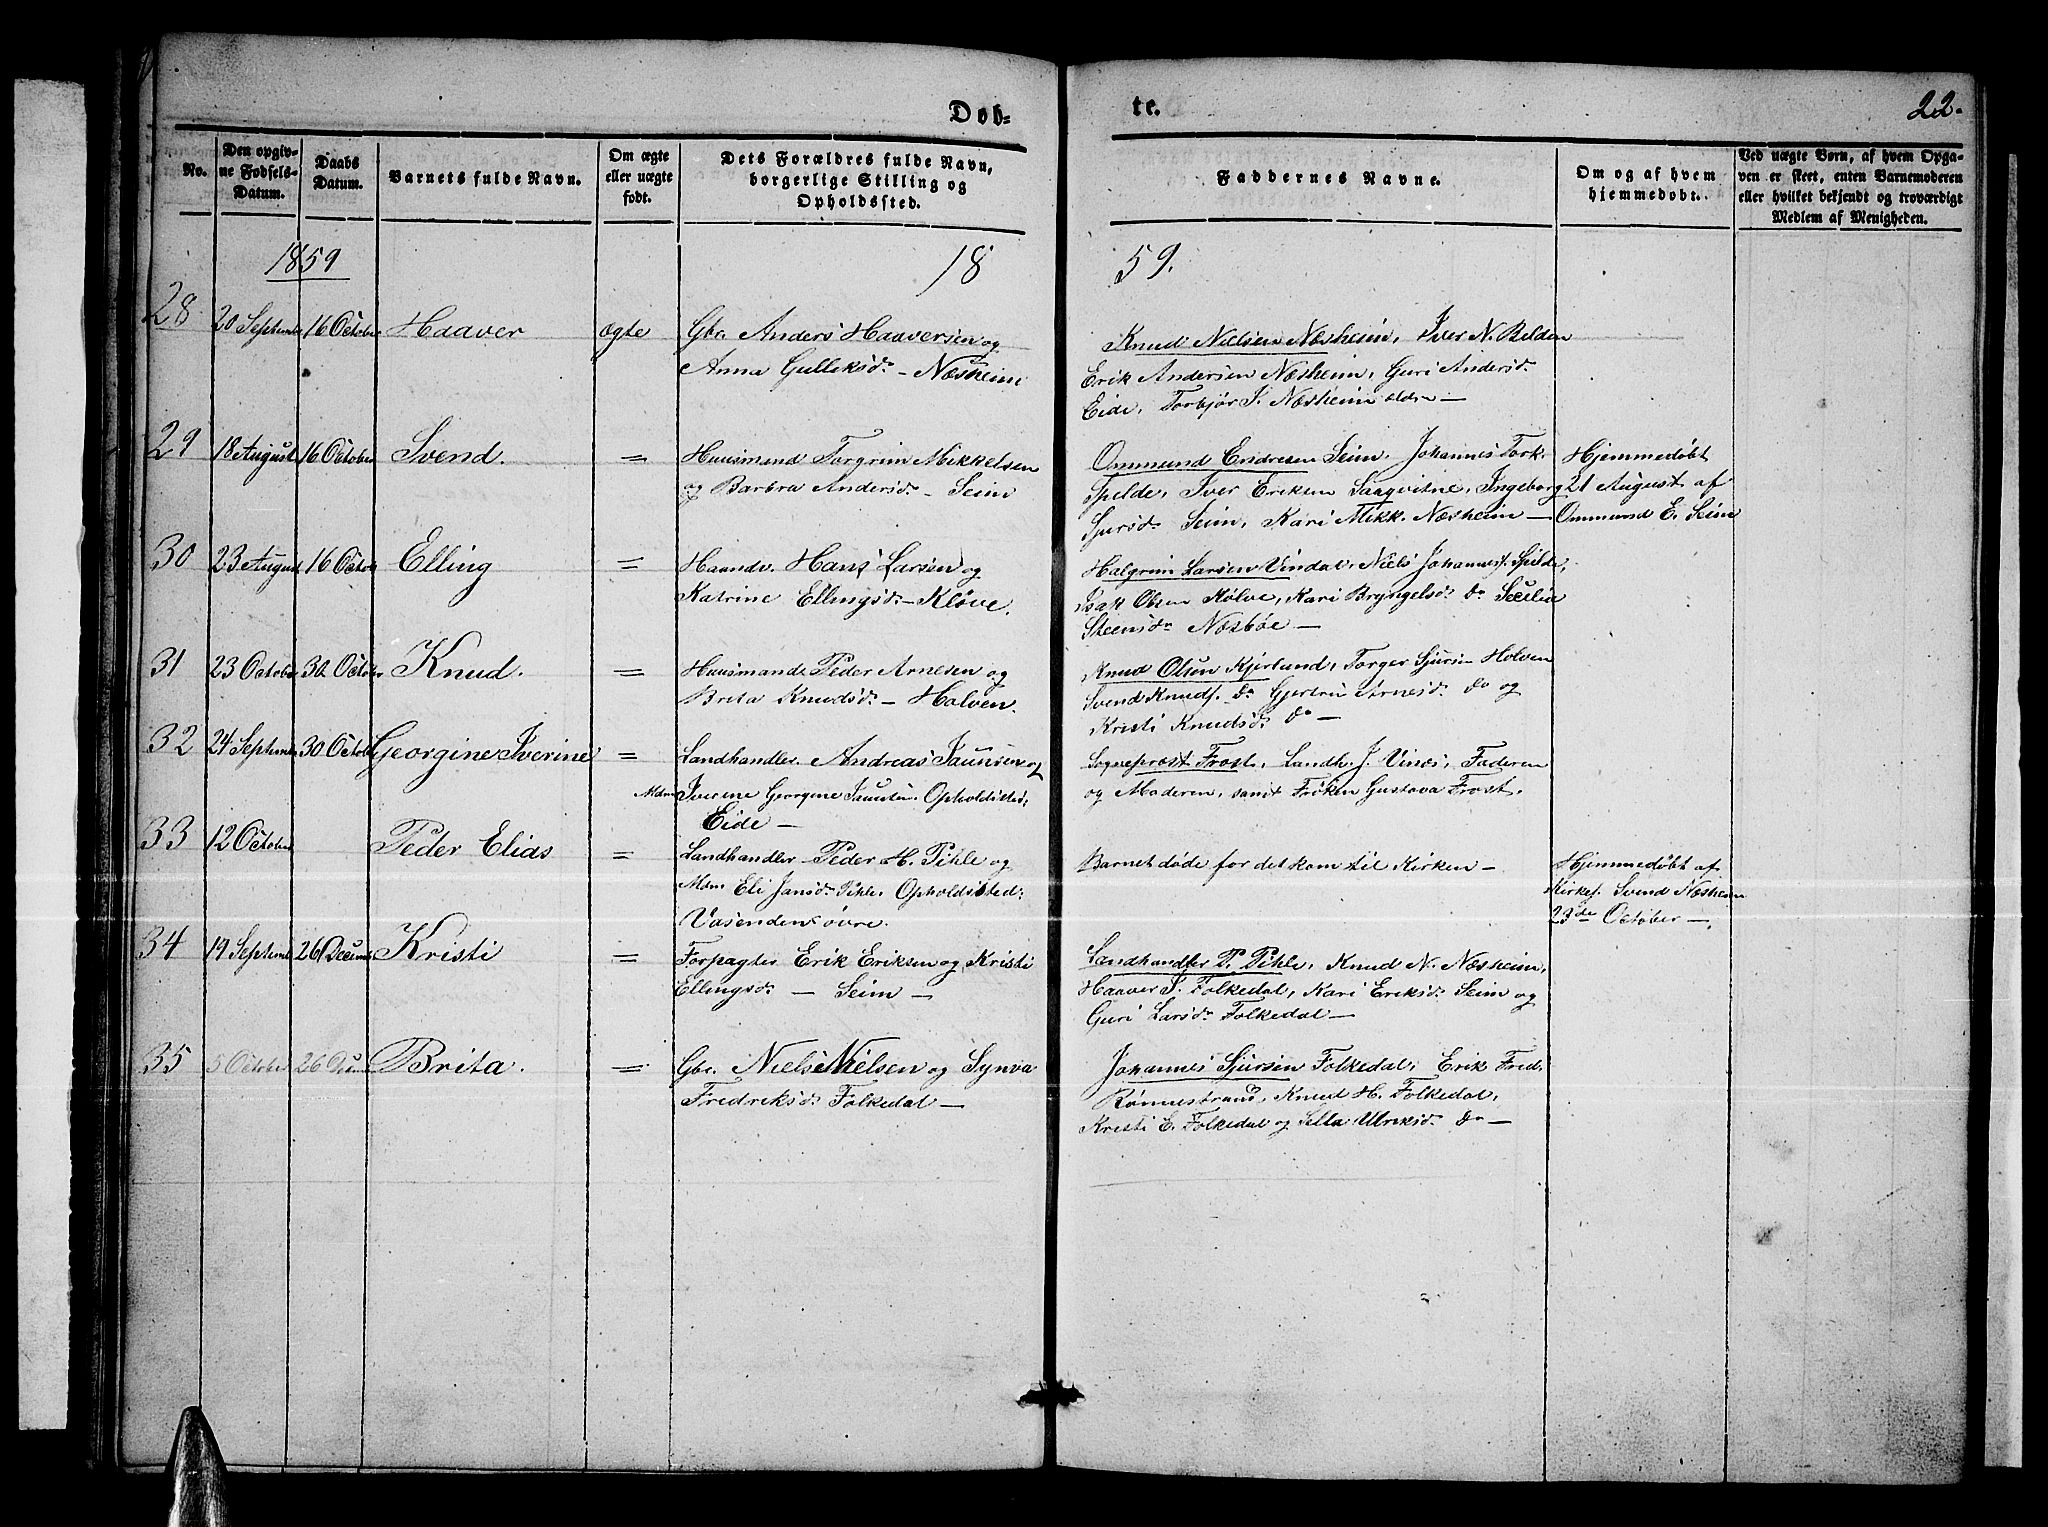 Døb-
te.
22.
No.
Den opgiv-
ne Fødsels-
Datum.
Daabs
Datum.
Barnets fulde Navn.
Om ægte
eller uægte
født.
Dets Forældres fulde Navn,
borgerlige Stilling og
Opholdssted.
Faddernes Navne.
Om og af hvem
hjemmedøbt.
Ved uægte Børn, af hvem Opga-
ven er skeet, enten Barnemoderen
eller hvilket bekjendt og troværdigt
Medlem af Menigheden.
1859
18
59.
28 20 Septembr 16 October Haaver ægte Gbr. Anders Haaversen og
Anna Gulleksdr – Næsheim
Knud Nielsen Næsheim, Iver N. Bilden
Erik Andersen Næsheim, Guri Andersdr
Eide, Torbjør I. Næsheim ældr –
29 18 August 16 October Svend. = Huusmand Torgrim Mikkelsen
og Barbra Andersdr – Seim
Ommund Endresen Seim. Johannes Tork.
Spilde, Iver Eriksen Saaqvitne, Ingeborg
Sjursdr Seim, Kari Mikk. Næsheim –
Hjemmedøbt
21 August af
Ommund E. Seim
30 23 August 16 Octob Elling = Haandv. Hans Larsen og
Katrine Ellingsdr – Kløve.
Halgrim Larsen Vindal. Niels Johannesf. Spilde,
Isak Olsen Kløve, Kari Bryngelsdr Do Secilia
Steensdr Næsbøe –
31 23 October 30 October Knud. = Huusmand Peder Arnesen og
Brita Knudsdr – Holven.
Knud Olsen Kjerland, Torger Sjursen Holven
Svend Knuds. Do Gjertru Arnesdr Do og
Kristi Knudsdr Do –
32 24 Septembr 30 Octob Georgine Iverine = Landhandler. Andreas Jaunsen og
Mdm Iverene Georgene Jaunsen. Opholdssted,
Eide –
Sogneprest Frost, Landh. J. Vinæs, Faderen
og Moderen, samt Frøken Gustava Frost.
33 12 October Peder Elias = Landhandler Peder H. Pihle og
Mdm Eli Jansdr Pihle, Opholdssted:
Vasenden øvre.
Barnet døde før det kom til Kirken –
Hjemmedøbt af
Kirkes. Svend Næsheim
23de October –
34 19 Septembr 26 Decemb Kristi = Forpagter Erik Eriksen og Kristi
Ellingsdr – Seim –
Landhandler P. Pihle, Knud N. Næsheim,
Haaver S. Folkedal, Kari Eriksdr Seim og
Guri Larsdr Folkedal –
35 5 October 26 Decemb Brita. = Gbr. Niels Nielsen og Synva
Fredriksdr Folkedal –
Johannes Sjursen Folkedal, Erik Fred.
Rønnestrand, Knud H. Folkedal,
Kristi E. Folkedal og Sella Ulriksdr Do –